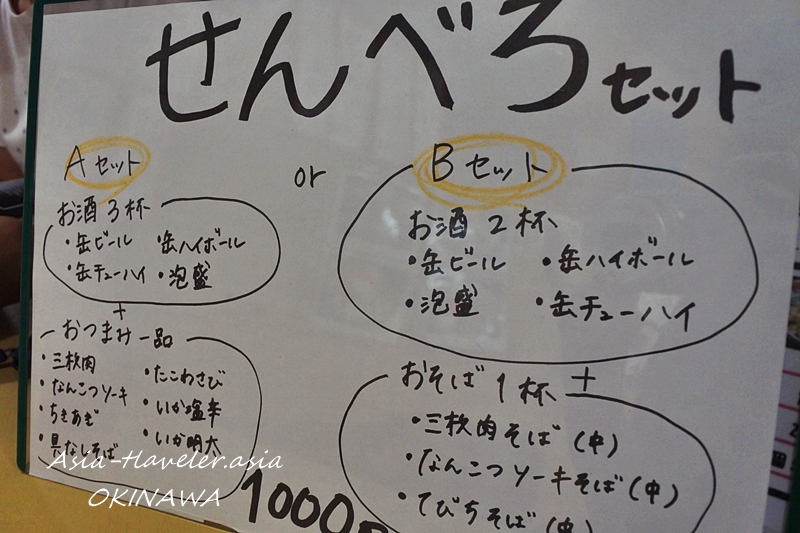 せんべろセット
Aセット
お酒3杯
・缶ビール ・缶ハイボール
・缶チューハイ ・泡盛
+
おつまみ一品
・三枚肉
・なんこつソーキ
・ちきあぎ
・具なしそば
・たこわさび
・いか塩辛
・いか明太
or
Bセット
お酒2杯
・缶ビール ・缶ハイボール
・泡盛 ・缶チューハイ
+
おそば1杯
・三枚肉そば(中)
・なんこつソーキそば(中)
・てびちそば(中)
1000
Asia-Haveler.asia
OKINAWA